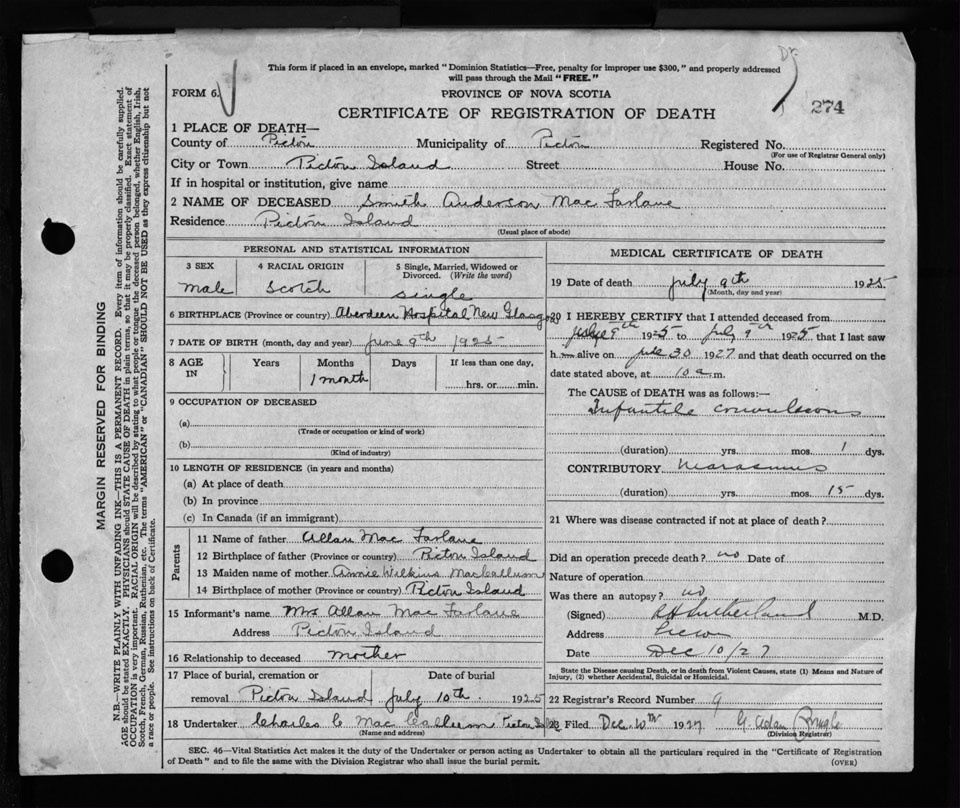 This form if placed in an envelope, marked "Dominion Statistics—Free, penalty for improper use $300," and properly addressed
will pass through the Mail "FREE."
FORM 6.
PROVINCE OF NOVA SCOTIA
CERTIFICATE OF REGISTRATION OF DEATH
274
1 PLACE OF DEATH—
County of Pictou Municipality of Pictou Registered No.
(For use of Registrar General only)
City or Town Pictou Island Street House No.
If in hospital or institution, give name
2 NAME OF DECEASED Smith Anderson Mac Farlane
Residence Pictou Island
(Usual place of abode)
PERSONAL AND STATISTICAL INFORMATION
3 SEX 4 RACIAL ORIGIN 5 Single, Married, Widowed or
Divorced. (Write the word)
male Scotch single
6 BIRTHPLACE (Province or country) Aberdeen Hospital New Glasgow
7 DATE OF BIRTH (month, day and year) June 9th 1925
8 AGE IN Years Months Days If less than one day,
1 month hrs. or min.
9 OCCUPATION OF DECEASED
(a)
(Trade or occupation or kind of work)
(b)
(Kind of industry)
10 LENGTH OF RESIDENCE (in years and months)
(a) At place of death
(b) In province
(c) In Canada (if an immigrant)
Parents
11 Name of father Allan Mac Farlane
12 Birthplace of father (Province or country) Pictou Island
13 Maiden name of mother Annie Wilkins MacCallum
14 Birthplace of mother (Province or country) Pictou Island
15 Informant's name Mrs Allan Mac Farlane
Address Pictou Island
16 Relationship to deceased mother
17 Place of burial, cremation or Date of burial
removal Pictou Island July 10th. 1925
18 Undertaker Charles C Mac Callum Pictou Island
(Name and address)
MEDICAL CERTIFICATE OF DEATH
19 Date of death July 9th 1925
(Month, day and year)
20 I HEREBY CERTIFY that I attended deceased from
9th 1925 to July 9th 1925, that I last saw
h alive on 30 1927 and that death occurred on the
date stated above, at 10 a m.
The CAUSE OF DEATH was as follows:—
Infantile convulsions
(duration) yrs. mos. 1 dys.
CONTRIBUTORY Marasmus
(duration) yrs. mos. 15 dys.
21 Where was disease contracted if not at place of death?
Did an operation precede death? no Date of
Nature of operation
Was there an autopsy? no
(Signed) Sutherland M.D.
Address
Date Dec 10/27
State the Disease causing Death, or in death from Violent Causes, state (1) Means and Nature of
Injury, (2) whether Accidental, Suicidal or Homicidal.
22 Registrar's Record Number 9
23 Filed Dec. 10th 1927
(Division Registrar)
SEC. 46—Vital Statistics Act makes it the duty of the Undertaker or person acting as Undertaker to obtain all the particulars required in the "Certificate of Registration
of Death" and to file the same with the Division Registrar who shall issue the burial permit.
(OVER)
MARGIN RESERVED FOR BINDING
N.B.—WRITE PLAINLY WITH UNFADING INK—THIS IS A PERMANENT RECORD. Every item of information should be carefully supplied.
AGE should be stated EXACTLY. PHYSICIANS should STATE CAUSE OF DEATH in plain terms, so that it may be properly classified. Exact statement of
OCCUPATION is very important. RACIAL ORIGIN will be described by stating to what people or tongue the deceased person belonged, whether English, Irish,
Scotch, French, German, Russian, Ruthenian, etc. The terms "AMERICAN" or "CANADIAN" SHOULD NOT BE USED as they express citizenship but not
a race or people. See instructions on back of Certificate.